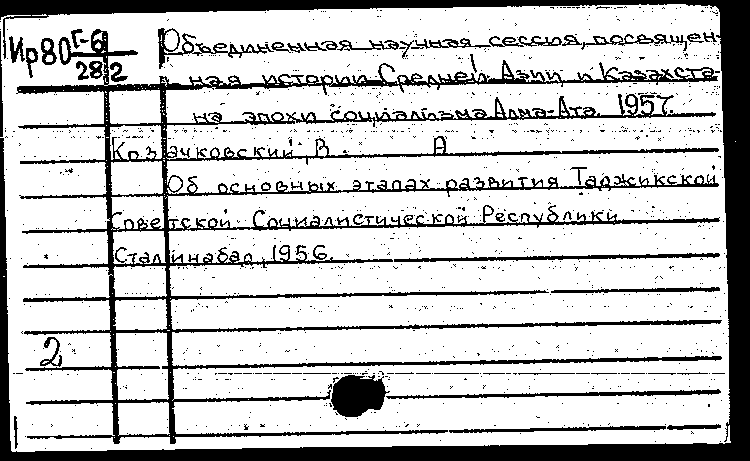 Ир80 Г-6
282
Объединенная научная сессия, посвящен-
ная истории Средней Азии и Казахста
на эпохи социализма Алма-Ата. 1957.
Козачковский, В. А
Об основных этапах развития Таджикской
Советской Социалистической Республики
Сталинабад, 1956.
2